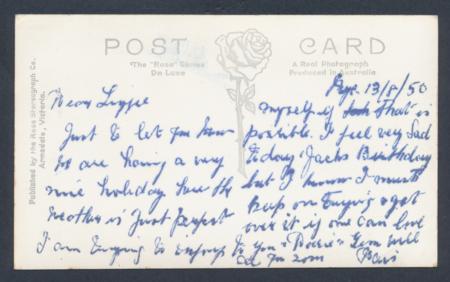 POST CARD
The "Rose" Series
De Luxe
A Real Photograph
Produced in Australia
Published by the Rose Stereograph Co.
Armadale, Victoria.
13/8/50
Dear
Just to let you know
we are having a very
nice holiday here the
weather is just perfect
I am trying to enjoy
myself that is
possible. I feel very sad
today Jacks Birthday
but I know I must
keep on trying & get
over it if one can love
to you
will